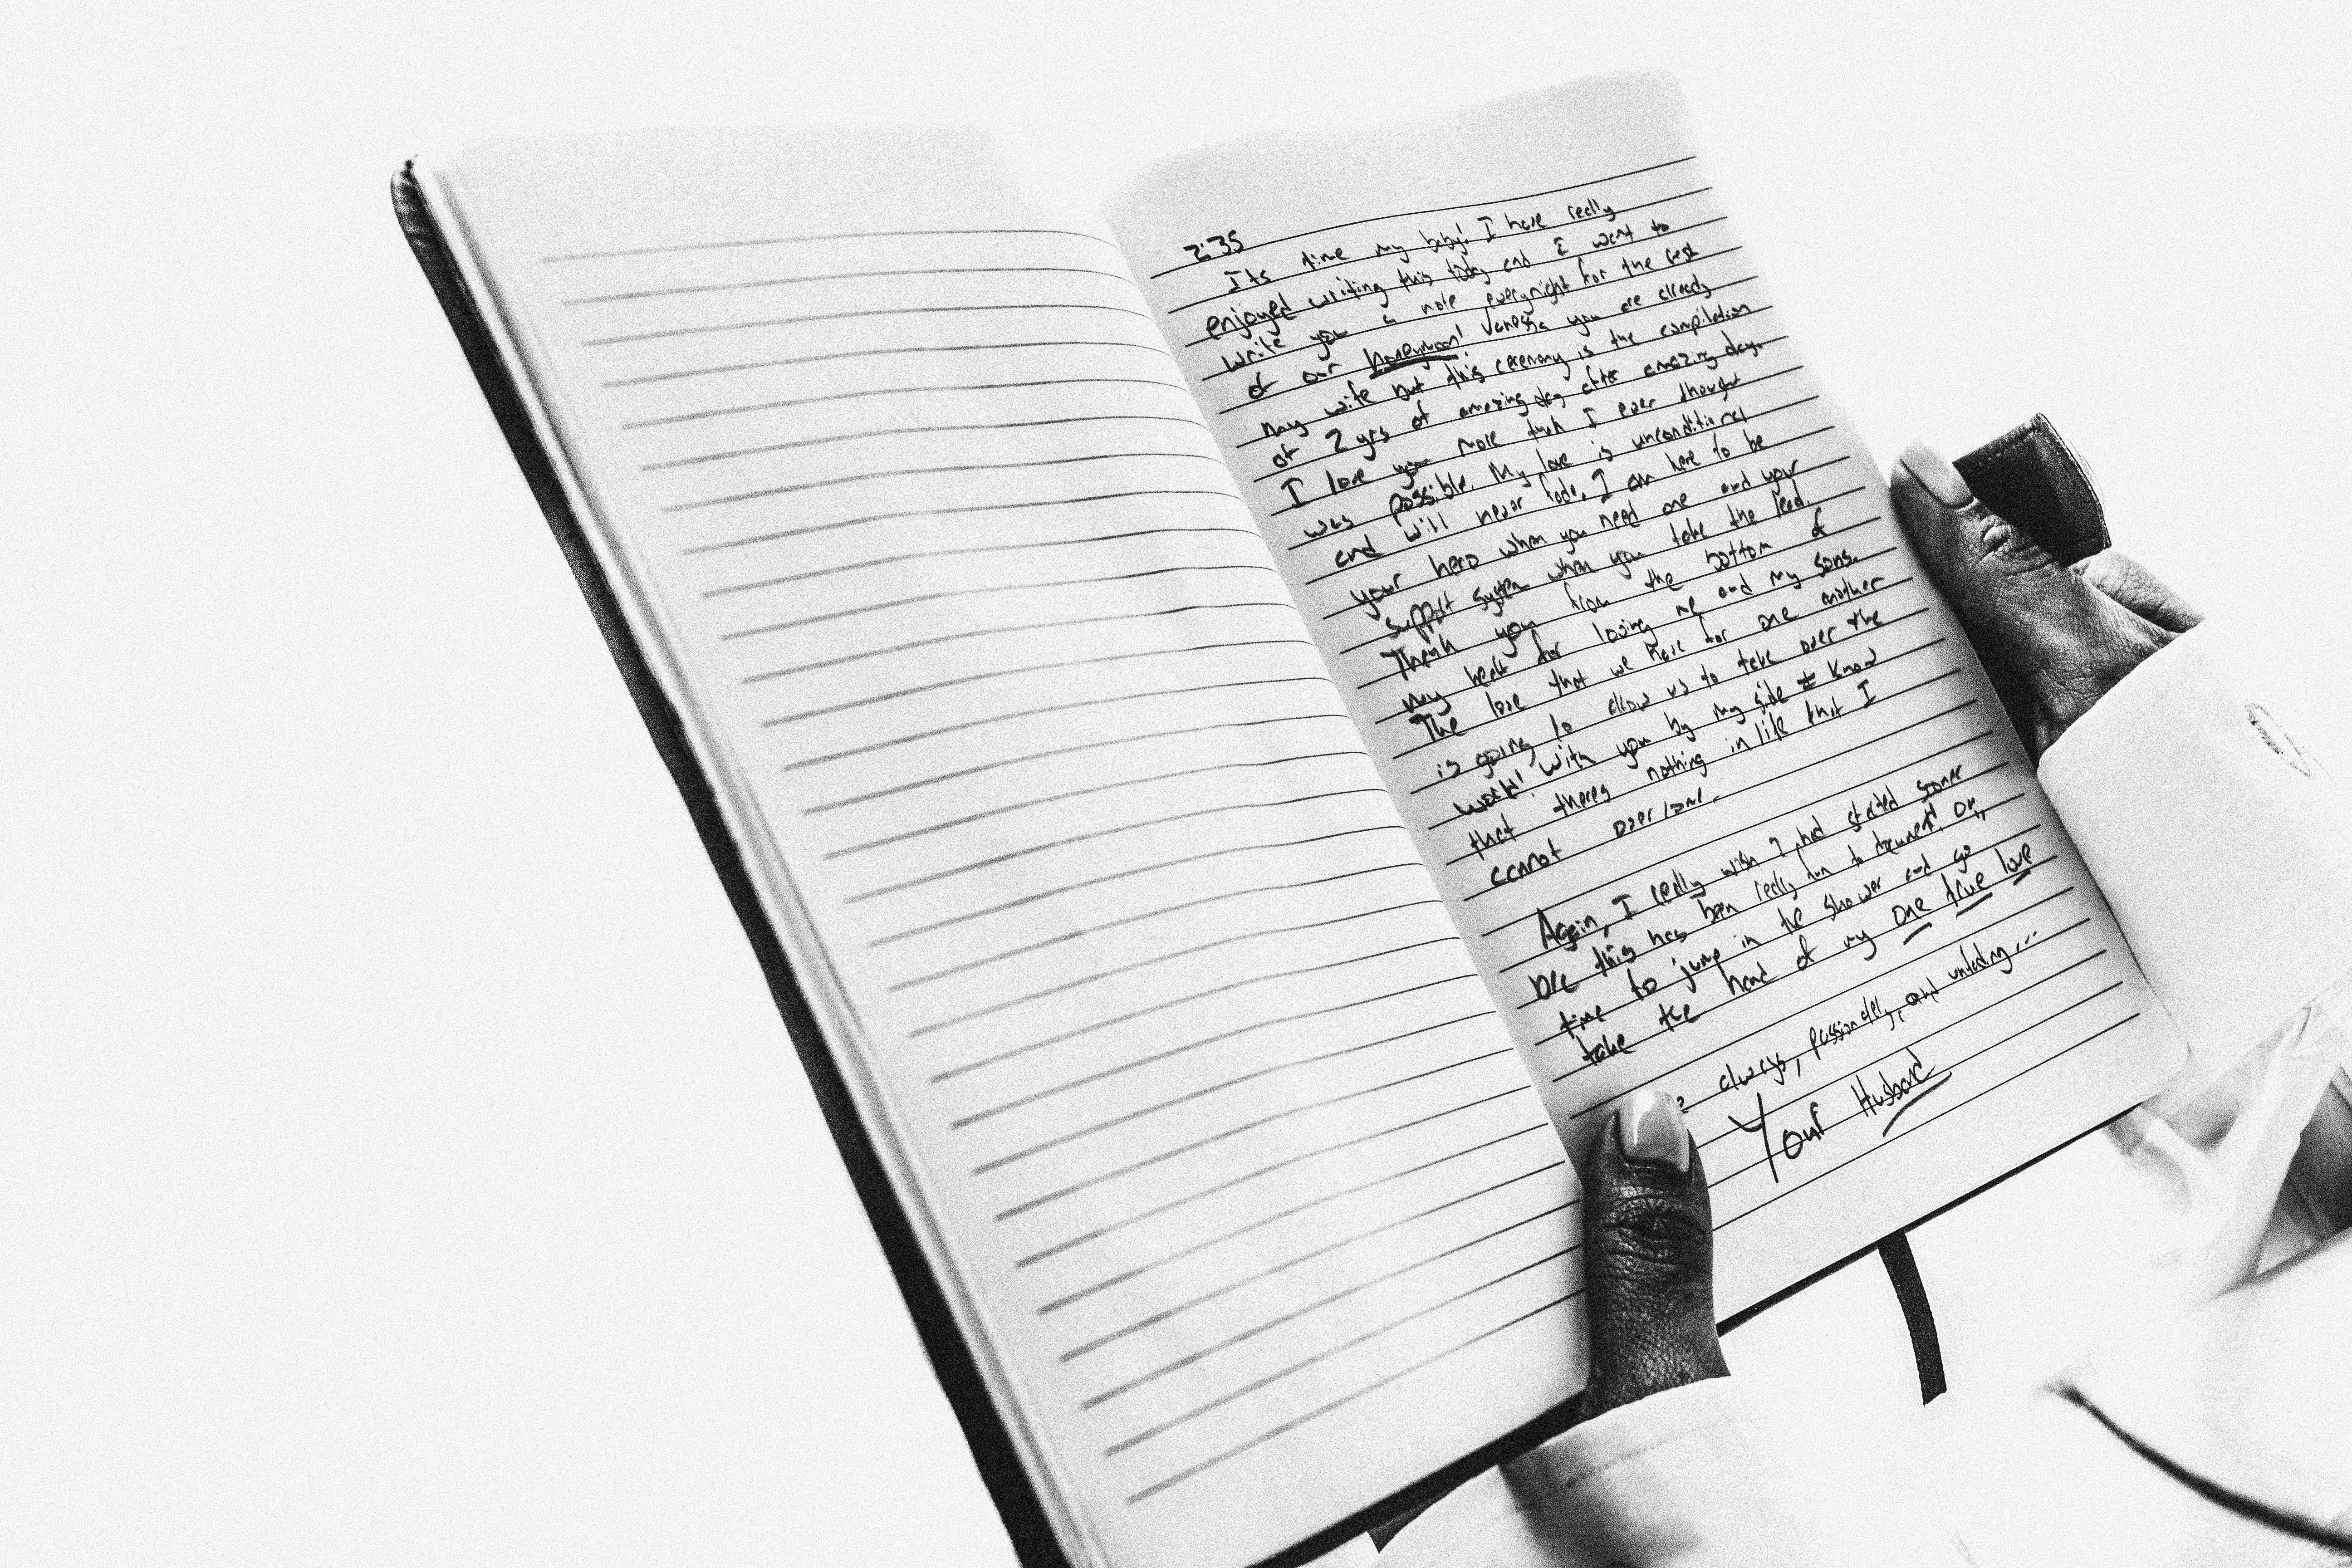 2:35
Its time my baby! I have really
enjoyed writing this today and I want to
write you a note everynight for the rest
of our honeymoon! Vanessa you are already
my wife but this ceremony is the compilation
of 2 yrs of amazing day after amazing day.
I love you more than I ever thought
was possible. My love is unconditional
and will never fade. I am here to be
your hero when you need one and your
support system when you take the lead.
Thank you from the bottom of
my heart for loving me and my sons.
The love that we have for one another
is going to allow us to take over the
world! With you by my side I know
that theres nothing in life that I
cannot overcome.
Again, I really wish I had started sooner
b/c this has been really fun to document. Ok,
time to jump in the shower and go
take the hand of my one true love
always, passionately, and unfading...
Your Husband